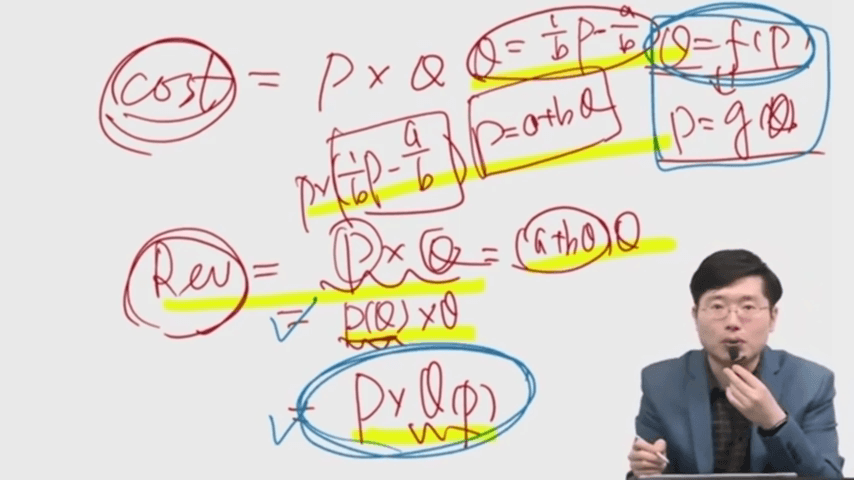 cost = P × Q
Q = 1/b P - a/b
Q = f(P)
P = a + bQ
P = g(Q)
P × (1/b P - a/b)
Rev = P × Q = (a + bQ) Q
= P(Q) × Q
= P × Q(P)